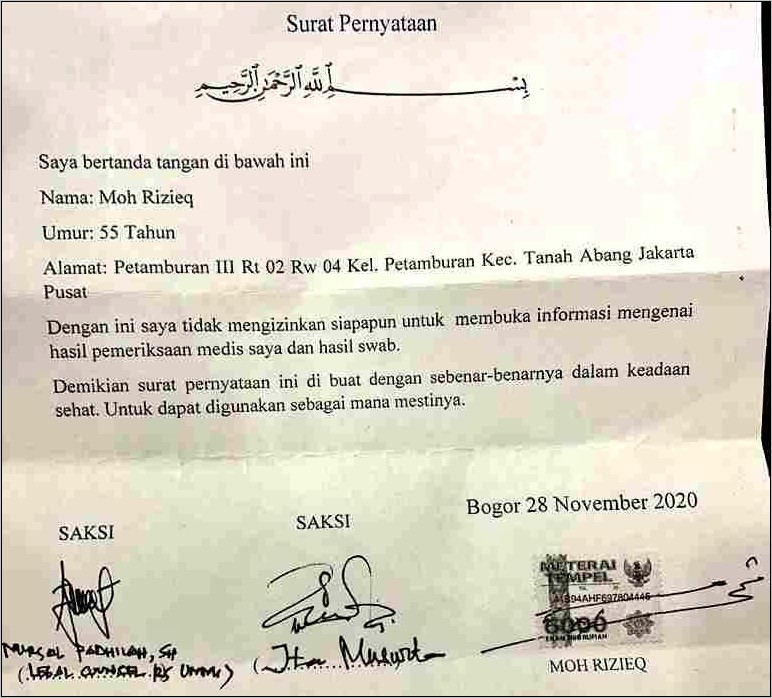 Surat Pernyataan
بِسْمِ اللَّهِ الرَّحْمَٰنِ الرَّحِيمِ
Saya bertanda tangan di bawah ini
Nama: Moh Rizieq
Umur: 55 Tahun
Alamat: Petamburan III Rt 02 Rw 04 Kel. Petamburan Kec. Tanah Abang Jakarta
Pusat
Dengan ini saya tidak mengizinkan siapapun untuk membuka informasi mengenai
hasil pemeriksaan medis saya dan hasil swab.
Demikian surat pernyataan ini di buat dengan sebenar-benarnya dalam keadaan
sehat. Untuk dapat digunakan sebagai mana mestinya.
Bogor 28 November 2020
SAKSI
SAKSI
METERAI
TEMPEL
6000
ENAM RIBU RUPIAH
NURSAL PADHILAH, SH
(LEGAL COUNSEL RS UMMI)
MOH RIZIEQ